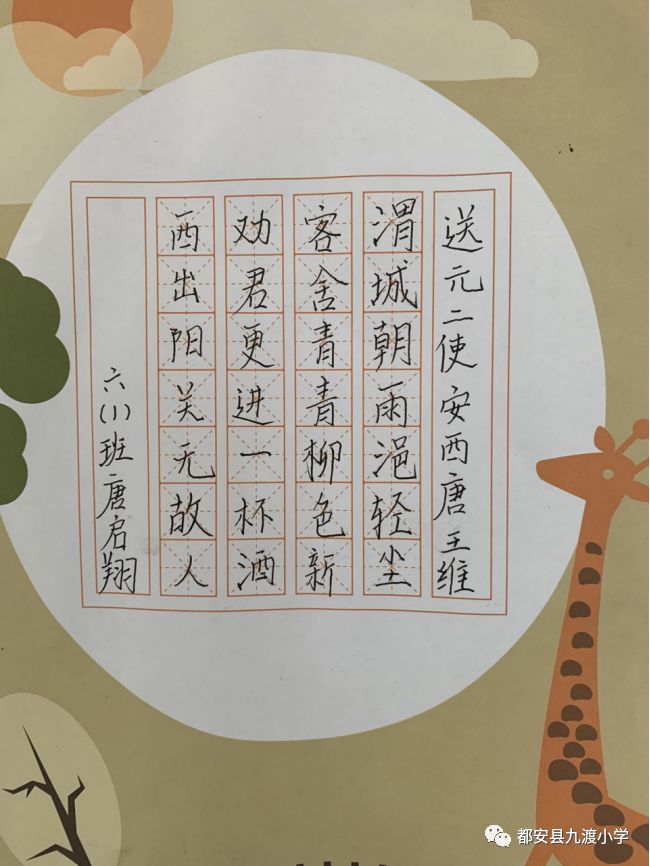 送元二使安西唐王维
渭城朝雨浥轻尘
客舍青青柳色新
劝君更进一杯酒
西出阳关无故人
六(1)班唐启翔
都安县九渡小学